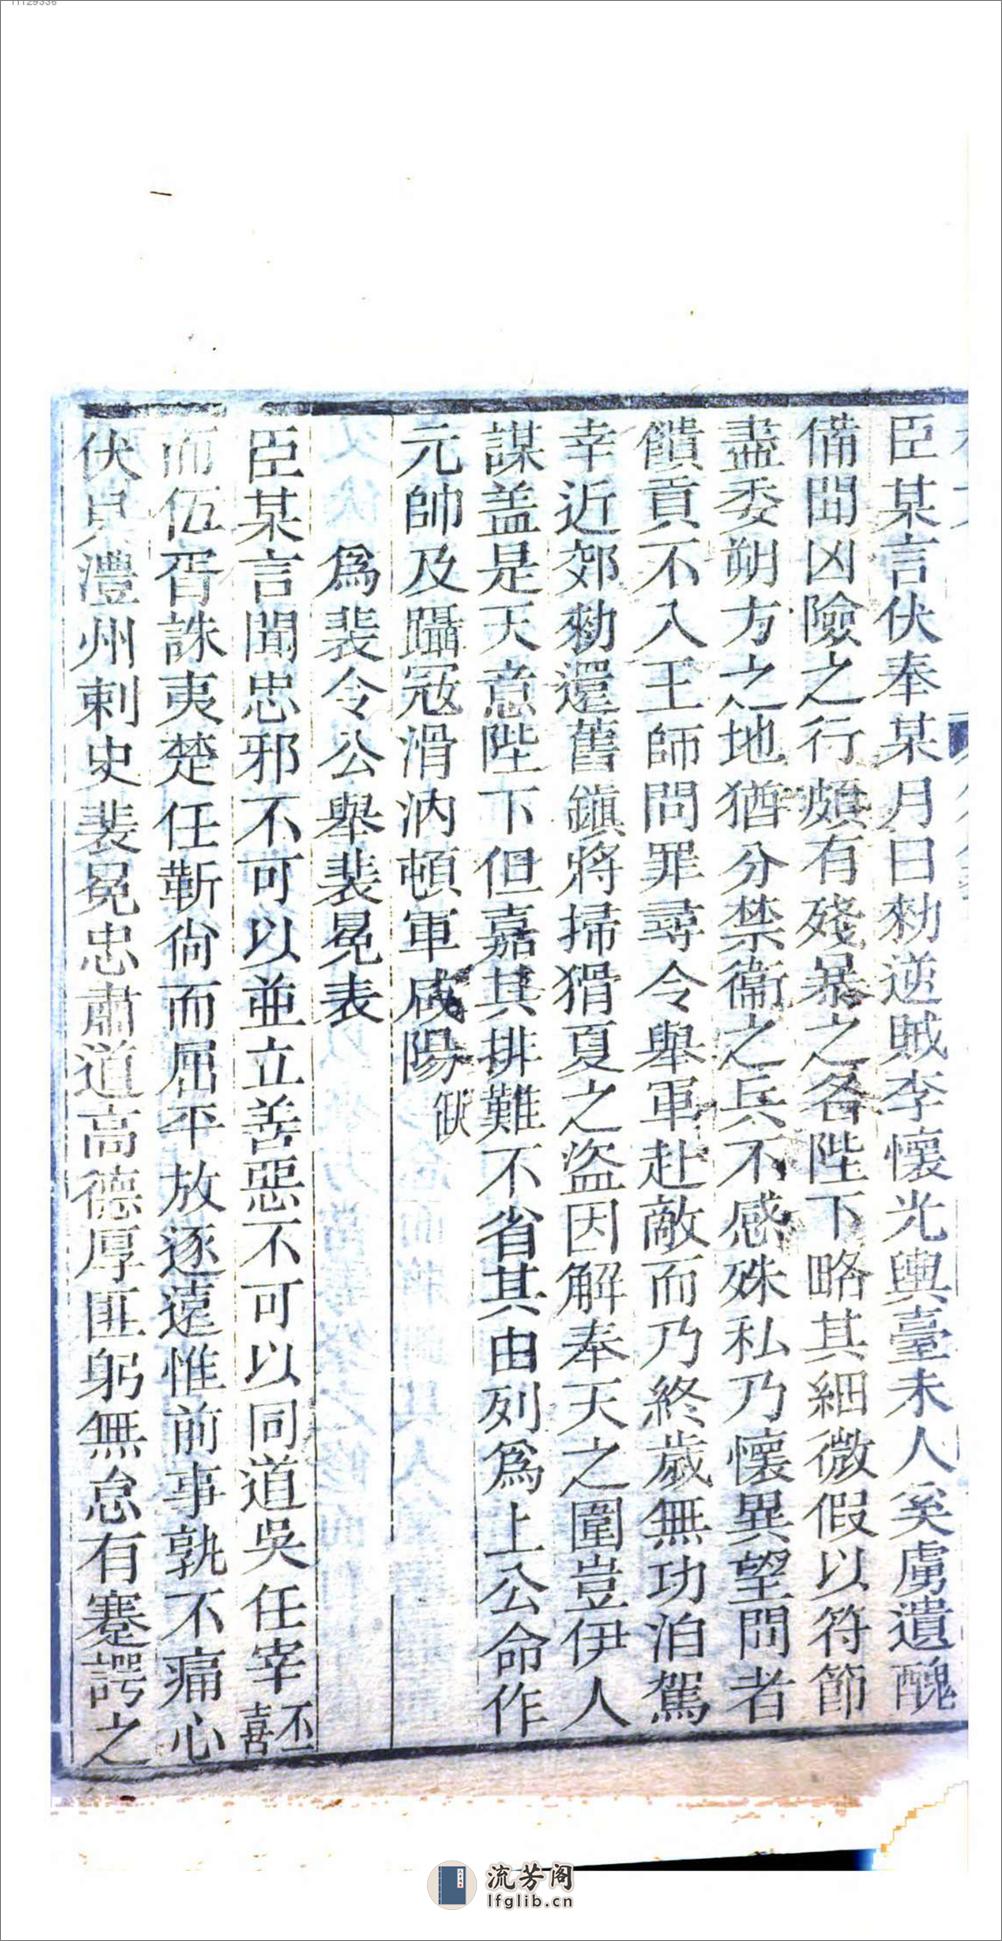 臣某言伏奉某月日勑逆賊李懷光輿臺末人奚虜遺醜
備聞凶險之行頗有殘暴之咎陛下略其細微假以符節
盡委朔方之地猶分禁衞之兵不感殊私乃懷異望問者
饋貢不入王師問罪尋令舉軍赴敵而乃終歲無功泊駕
幸近郊勑還舊鎮將掃猾夏之盜因解奉天之圍豈伊人
謀盖是天意陛下但嘉其排難不省其由列爲上公命作
元帥及躡寇滑汭頓軍咸陽缺
爲裴令公舉裴冕表
臣某言聞忠邪不可以並立善惡不可以同道吳任宰丕喜
而伍胥誅夷楚任靳尙而屈平放逐遠惟前事孰不痛心
伏見澧州刺史裴冕忠肅道高德厚匪躬無怠有蹇諤之
流芳阁
lfglib.cn